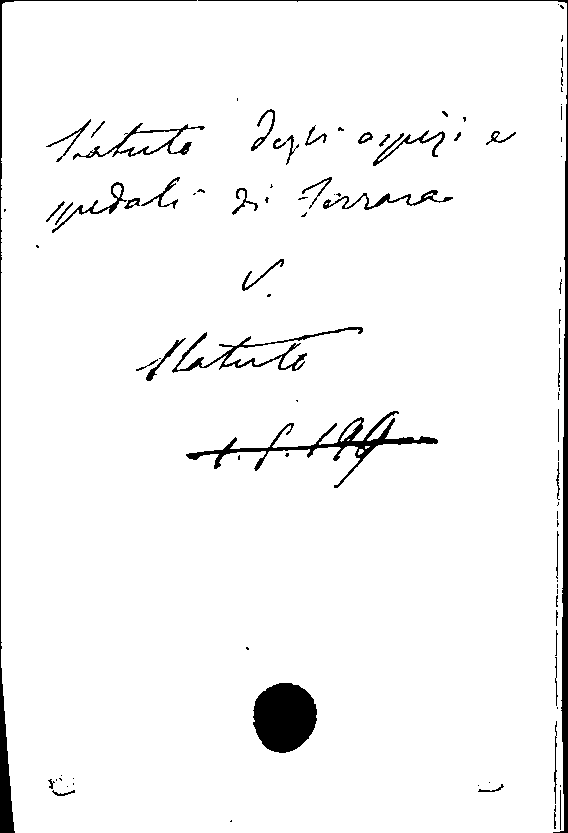 Statuto degli ospizi e
spedali di Ferrara
V.
Statuto